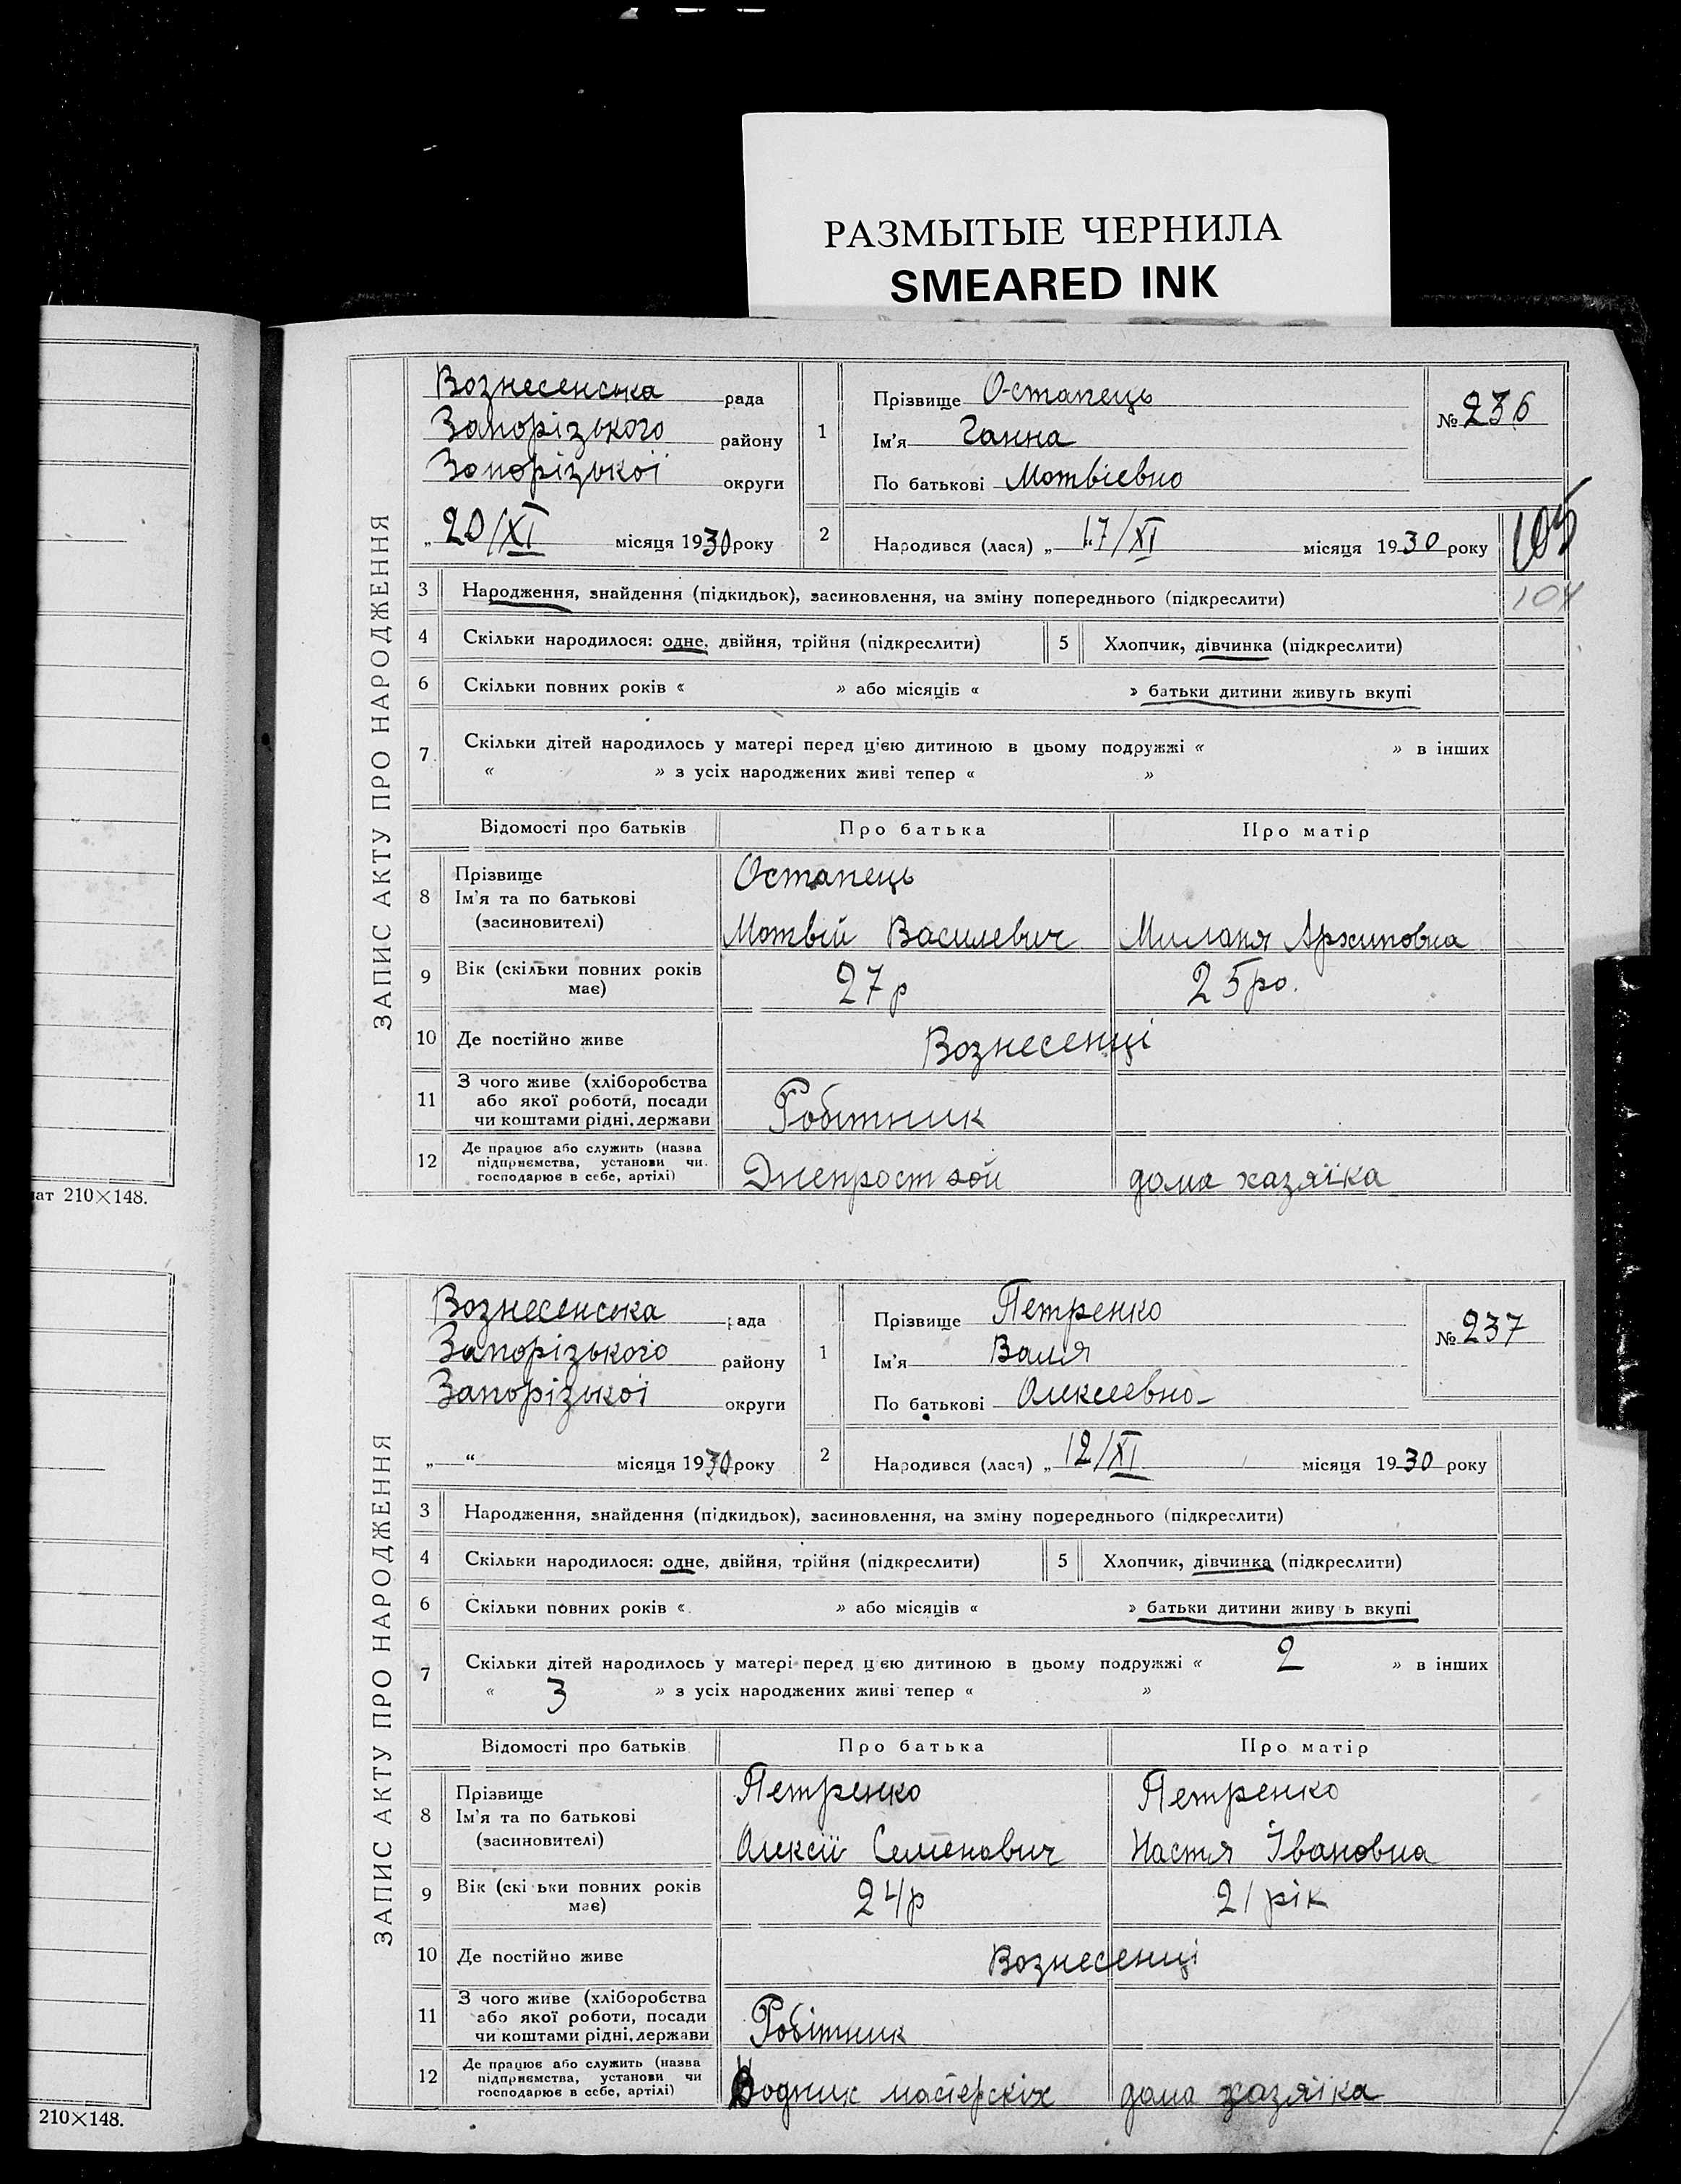 РАЗМЫТЫЕ ЧЕРНИЛА
SMEARED INK
ЗАПИС АКТУ ПРО НАРОДЖЕННЯ
Вознесенська рада
Запорізького району
Запорізької округи
„20/XI місяця 1930 року
1
Прізвище Остапець
Ім'я Ганна
По батькові Мотвієвно
№ 236
2
Народився (лася) „17/XI місяця 1930 року
105
104
3 Народження, знайдення (підкидьок), засиновлення, на зміну попереднього (підкреслити)
4 Скільки народилося: одне, двійня, трійня (підкреслити) 5 Хлопчик, дівчинка (підкреслити)
6 Скільки повних років « » або місяців « » батьки дитини живуть вкупі
7 Скільки дітей народилось у матері перед цією дитиною в цьому подружжі « » в інших
« » з усіх народжених живі тепер « »
Відомості про батьків Про батька Про матір
8 Прізвище
Ім'я та по батькові
(засиновителі)
Остапець
Мотвій Василевич Миланя Архиповна
9 Вік (скільки повних років має) 27 р 25 ро.
10 Де постійно живе Вознесенці
11 З чого живе (хліборобства
або якої роботи, посади
чи коштами рідні, держави
Робітник
12 Де працює або служить (назва
підприємства, установи чи
господарює в себе, артілі)
дома хазяїка
ат 210×148.
ЗАПИС АКТУ ПРО НАРОДЖЕННЯ
Вознесенська рада
Запорізького району
Запорізької округи
„ “ місяця 1930 року
1
Прізвище Петренко
Ім'я Валя
По батькові Олексеевно
№ 237
2
Народився (лася) „12/XI місяця 1930 року
3 Народження, знайдення (підкидьок), засиновлення, на зміну попереднього (підкреслити)
4 Скільки народилося: одне, двійня, трійня (підкреслити) 5 Хлопчик, дівчинка (підкреслити)
6 Скільки повних років « » або місяців « » батьки дитини живу ь вкупі
7 Скільки дітей народилось у матері перед ц єю дитиною в цьому подружжі « 2 » в інших
« 3 » з усіх народжених живі тепер « »
Відомості про батьків Про батька Про матір
8 Прізвище
Ім'я та по батькові
(засиновителі)
Петренко Петренко
Олексій Семенович Настя Івановна
9 Вік (скі ьки повних років має) 24 р 21 рік
10 Де постійно живе Вознесенці
11 З чого живе (хліборобства
або якої роботи, посади
чи коштами рідні, держави
Робітник
12 Де працює або служить (назва
підприємства, установи чи
господарює в себе, артілі)
Водник мастерскіх дома хазяїка
210×148.